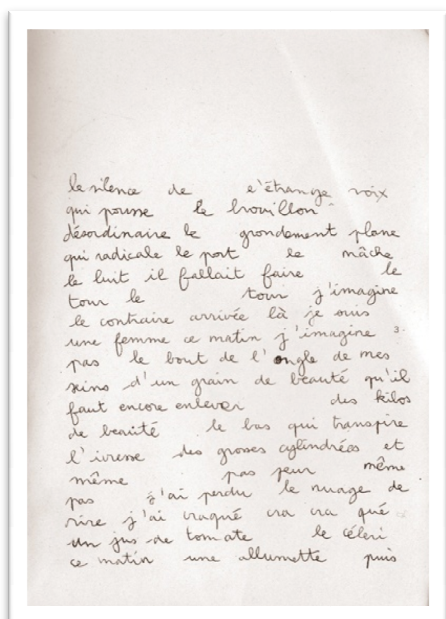 le silence de l'étrange voix
qui pousse le brouillon
désordinaire le grondement plane
qui radicale le port le mâche
le luit il fallait faire le
tour le tour j'imagine
le contraire arrivée là je suis
une femme ce matin j'imagine
pas le bout de l'ongle de mes
seins d'un grain de beauté qu'il
faut encore enlever des kilos
de beauté le bas qui transpire
l'ivresse des grosses cylindrées et
même pas peur même
pas j'ai perdu le nuage de
rire j'ai craqué cra cra qué
un jus de tomate le céleri
ce matin une allumette puis